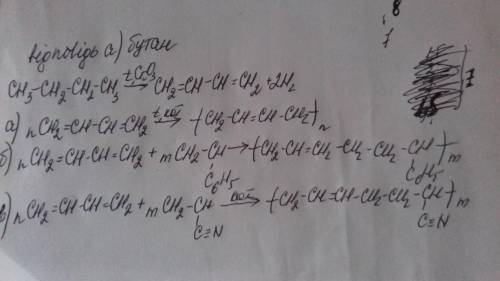 8
1
відповідь а) бутан
t,Cr₂O₃
CH₃-CH₂-CH₂-CH₃ → CH₂=CH-CH=CH₂ + 2H₂
а) nCH₂=CH-CH=CH₂ t,кат → (-CH₂-CH=CH-CH₂-)n
б) nCH₂=CH-CH=CH₂ + mCH₂-CH → (-CH₂-CH=CH₂-CH₂-CH₂-CH-)m
C₆H₅ C₆H₅
в) nCH₂=CH-CH=CH₂ + mCH₂-CH кат → (-CH₂-CH=CH-CH₂-CH₂-CH-)m
C≡N C≡N